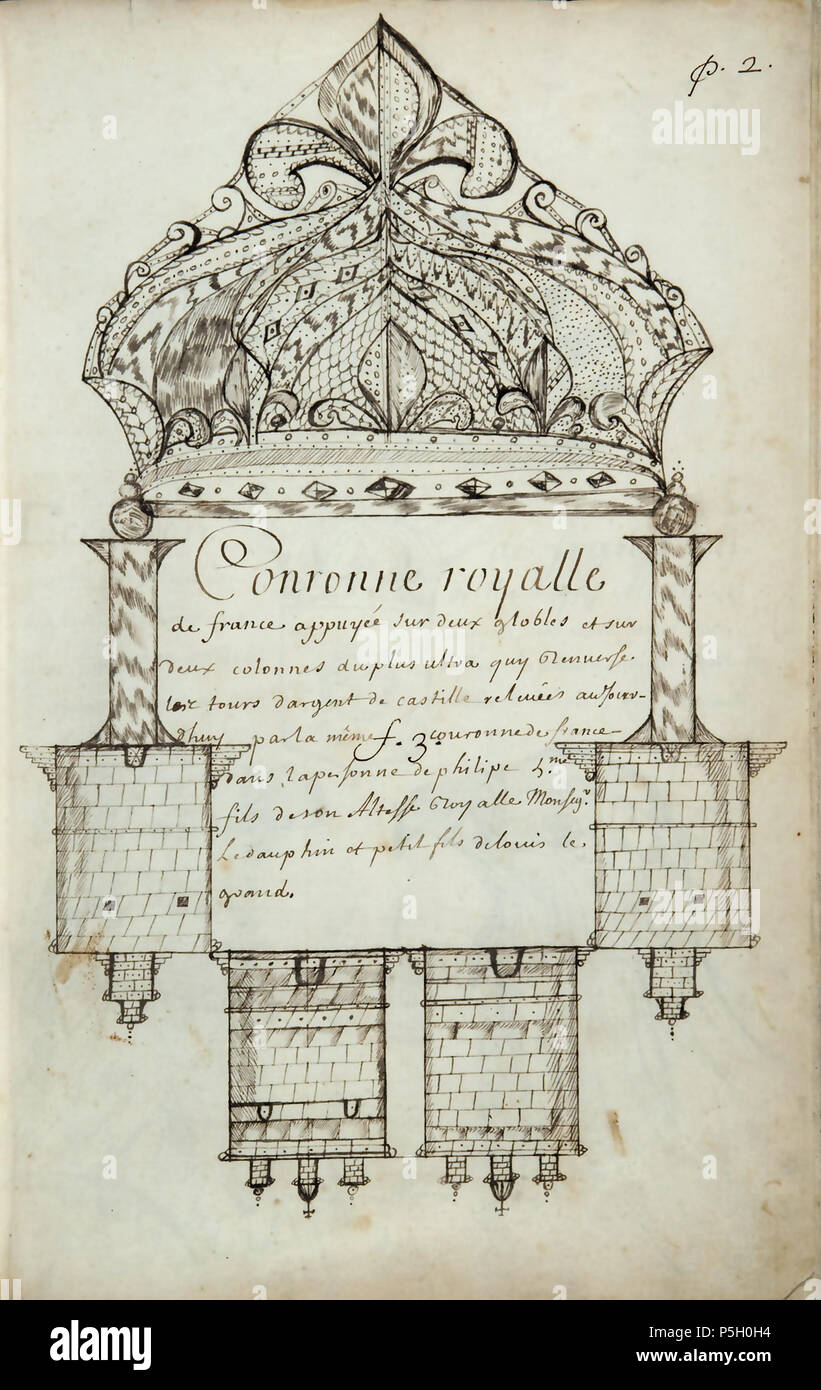 P. 2.
Couronne royalle
de france appuyée sur deux globles et sur
deux colonnes du plus ultra quy Renverse
les tours d'argent de castille relevées aujour-
d'huy par la même f. 3. couronne de france
dans la personne de philipe 5.me
fils de son Altesse Royalle Monseg.r
Le dauphin et petit fils de louis le
grand.
alamy
alamy
Image ID: P5H0H4
www.alamy.com